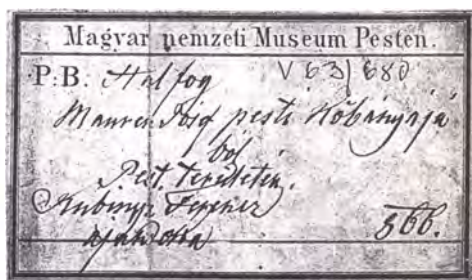 Magyar nemzeti Museum Pesten.
P: B. Hal fog V 63/680
pesti Kőbányájá
ból
Pest. területén.
Kubinyi Ferencz
ajándoka 566.